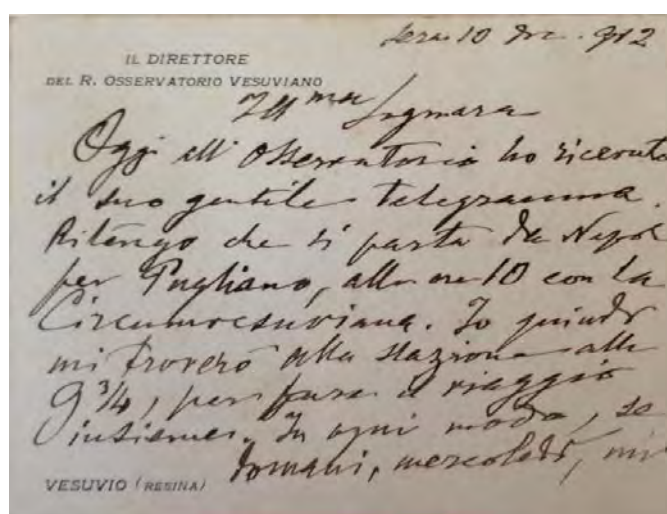 sera 10 Dic. 912
IL DIRETTORE
DEL R. OSSERVATORIO VESUVIANO
Ill.ma Signora
Oggi all' Osservatorio ho ricevuto
il suo gentile telegramma.
Ritengo che si parta da Napoli
per Pugliano, alle ore 10 con la
Circumvesuviana. Io quindi
mi troverò alla stazione alle
9 3/4, per fare il viaggio
insieme. In ogni modo, se
domani, mercoledì, mi
VESUVIO (RESINA)